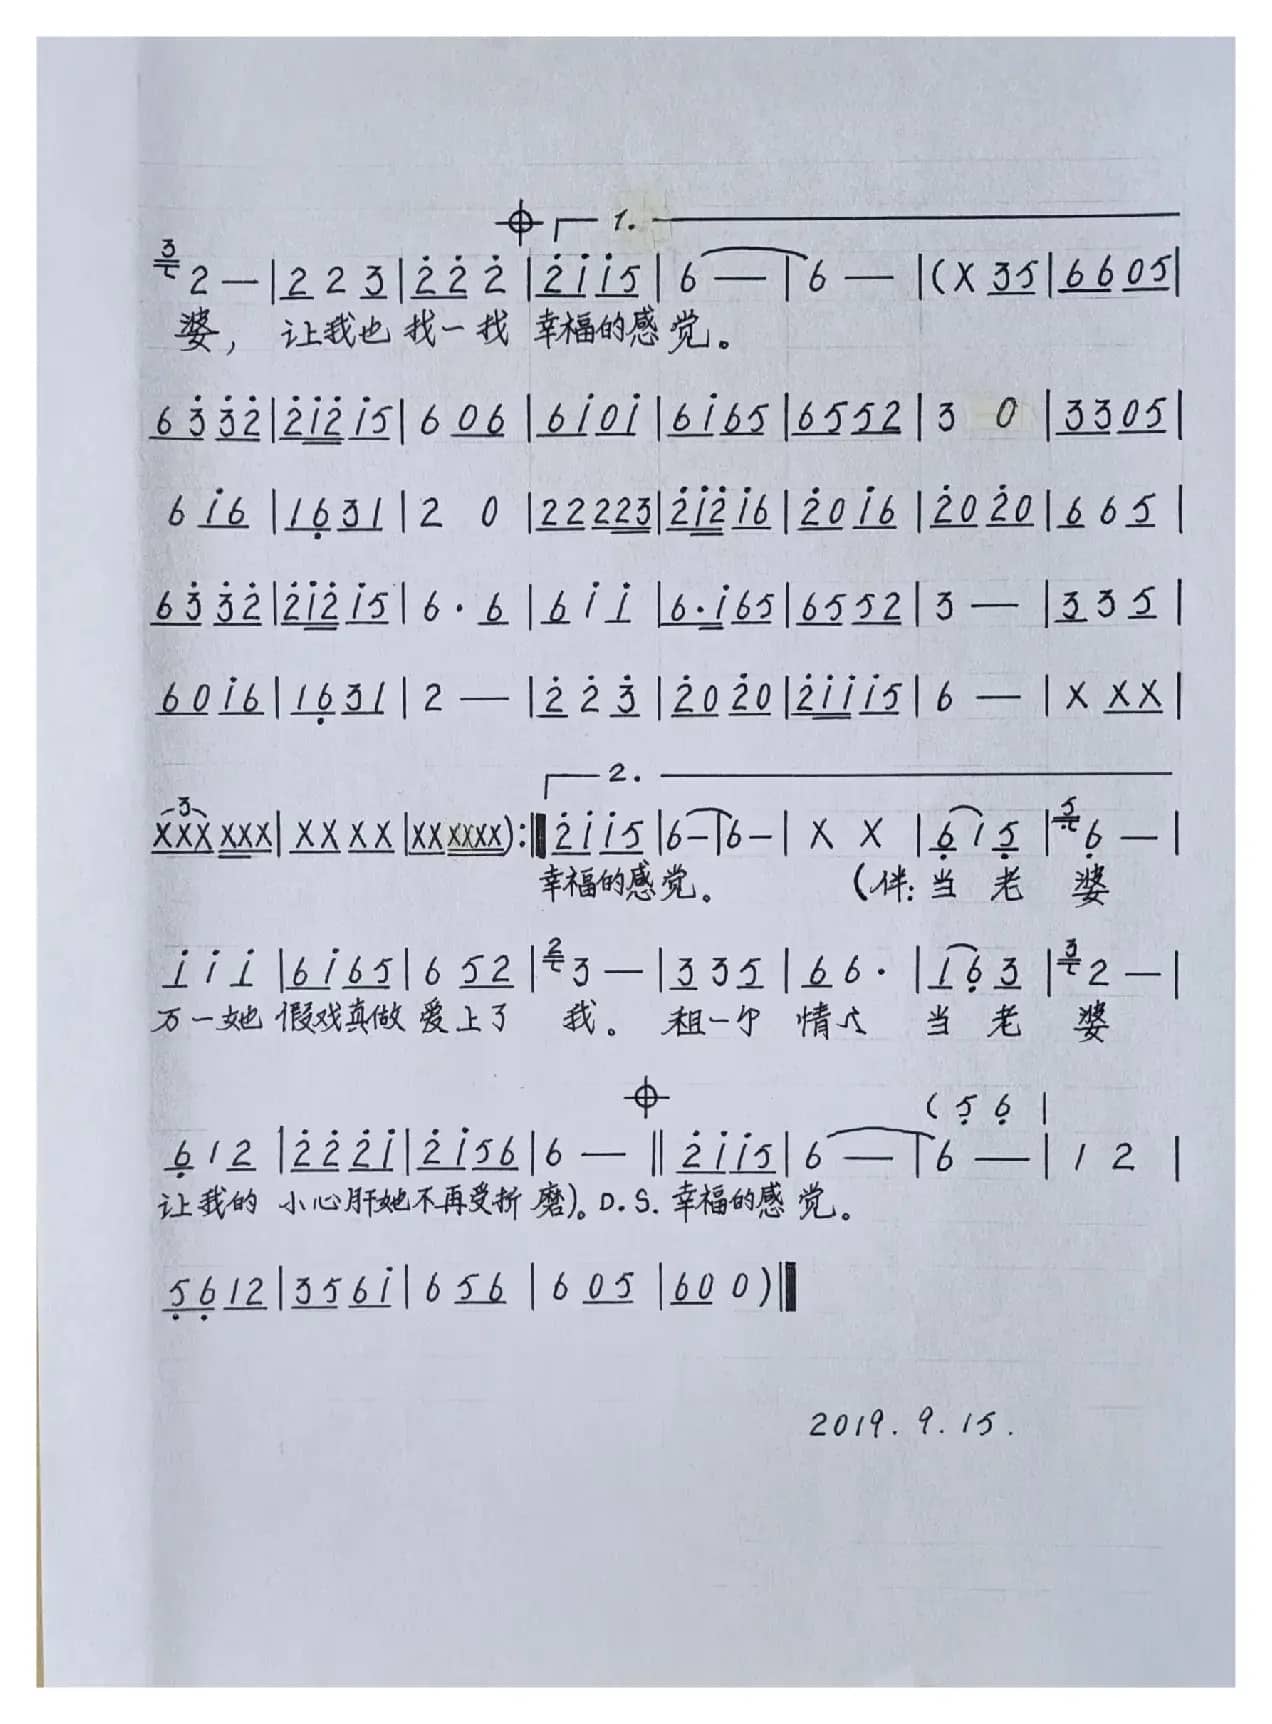 1.
3 2 — | 2 2 3 | 2̇ 2̇ 2̇ | 2̇ i i 5 | 6 — | 6 — | (X 3 5 | 6 6 0 5 |
婆， 让我也 找一找 幸福的感觉。
6 3̇ 3̇ 2̇ | 2̇ i 2̇ i 5 | 6 0 6 | 6 i 0 i | 6 i 6 5 | 6 5 5 2 | 3 0 | 3 3 0 5 |
6 i 6 | 1 6̣ 3 1 | 2 0 | 2 2 2 2 3 | 2̇ i 2̇ i 6 | 2̇ 0 i 6 | 2̇ 0 2̇ 0 | 6 6 5 |
6 3̇ 3̇ 2̇ | 2̇ i 2̇ i 5 | 6 · 6 | 6 i i | 6 · i 6 5 | 6 5 5 2 | 3 — | 3 3 5 |
6 0 i 6 | 1 6̣ 3 1 | 2 — | 2̇ 2̇ 3̇ | 2̇ 0 2̇ 0 | 2̇ i i i 5 | 6 — | X X X |
2.
3
X X X X X X | X X X X | X X X X X X) :‖ 2̇ i i 5 | 6 — | 6 — | X X | 6̣ 1 5̣ | 5̣ 6̣ — |
幸福的感觉。 （伴：当 老 婆
i i i | 6 i 6 5 | 6 5 2 | 2 3 — | 3 3 5 | 6 6 · | 1 6̣ 3 | 3 2 — |
万一她 假戏真做 爱上了 我。 租一个 情人 当 老 婆
(5̣ 6̣ |
6̣ 1 2 | 2̇ 2̇ 2̇ i | 2̇ i 5 6 | 6 — ‖ 2̇ i i 5 | 6 — | 6 — | 1 2 |
让我的 小心肝她不再受折 磨)。D.S. 幸福的感 觉。
5̣ 6̣ 1 2 | 3 5 6 i | 6 5 6 | 6 0 5 | 6 0 0 ) ‖
2019. 9. 15.